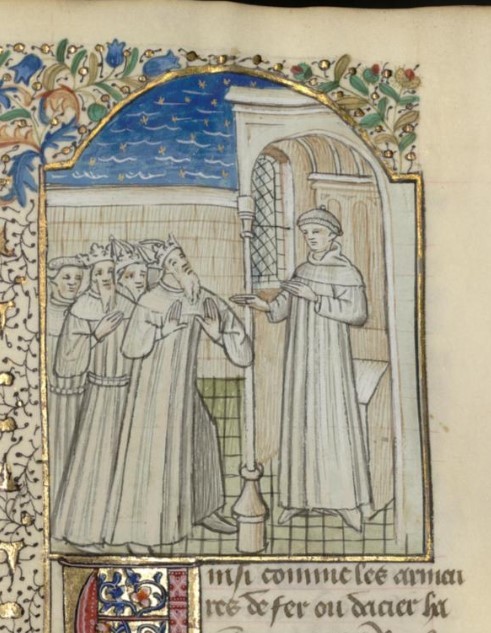 insi comme les armeu
res de fer ou dacier ha